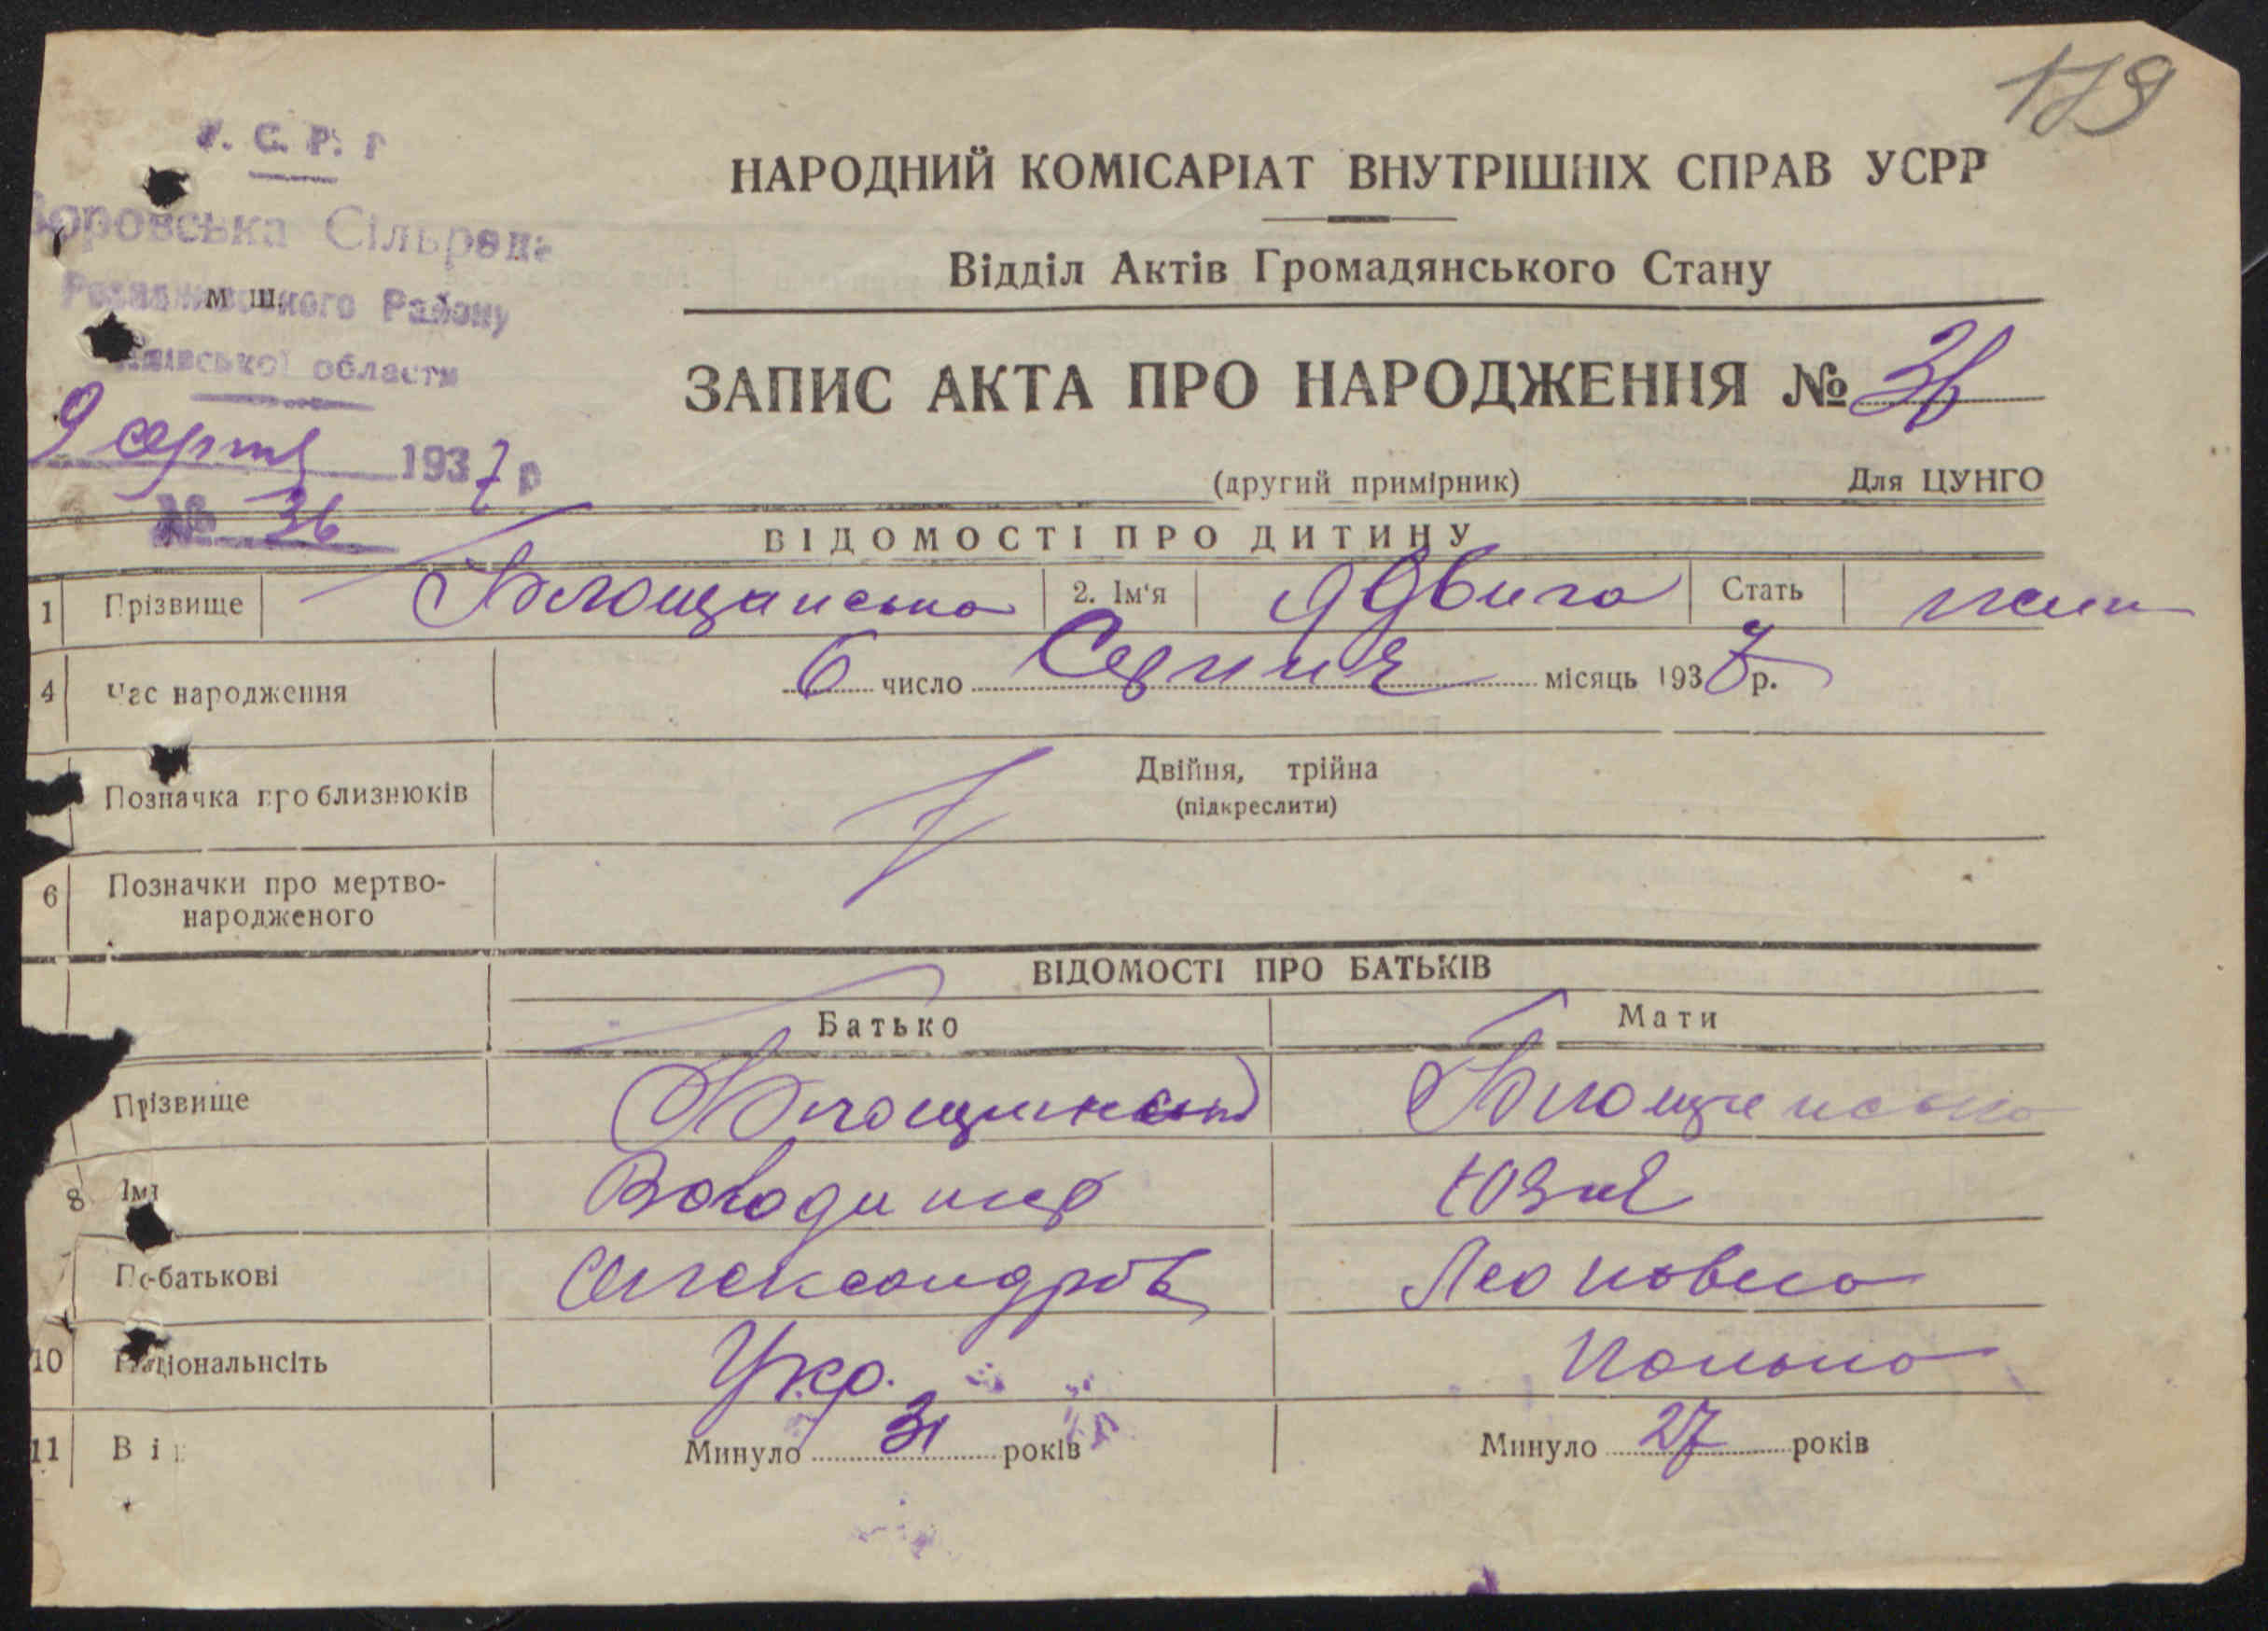 179
У. С. Р. Р
НАРОДНИЙ КОМІСАРІАТ ВНУТРІШНІХ СПРАВ УСРР
Сільрада
Відділ Актів Громадянського Стану
м ш.
Району
області
ЗАПИС АКТА ПРО НАРОДЖЕННЯ № 36
9 серпня 1937 р
(другий примірник) Для ЦУНГО
№ 36
ВІДОМОСТІ ПРО ДИТИНУ
1 Прізвище Блощанська 2. Ім'я Ядвига Стать жін
4 Час народження 6 число Серпня місяць 1937 р.
Позначка про близнюків Двійня, трійна
(підкреслити)
6 Позначки про мертво-
народженого
ВІДОМОСТІ ПРО БАТЬКІВ
Батько Мати
Прізвище Блощинський Блощинська
8 Імя Володимир Юзя
По-батькові Олександров Леоновна
10 Національнсіть Укр. Полька
11 Вік Минуло 31 років Минуло 27 років